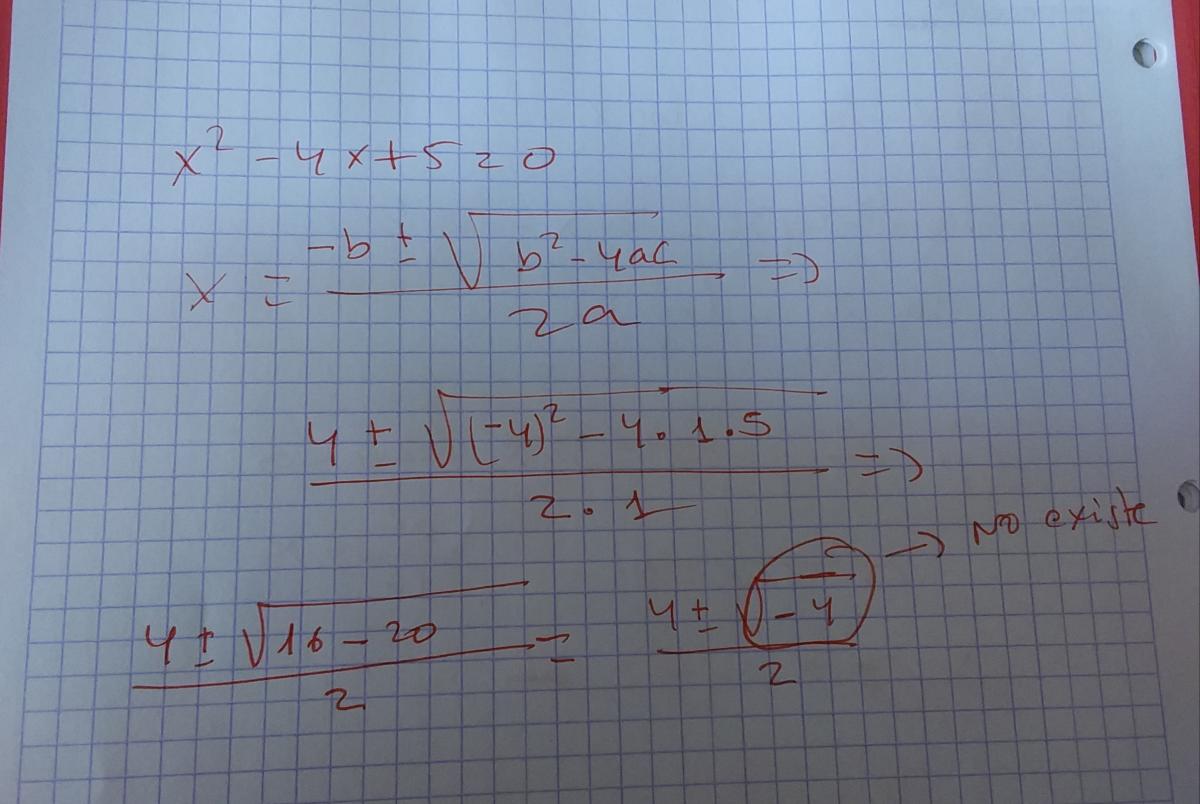 x² - 4x + 5 = 0
x = (-b ± √(b² - 4ac)) / (2a) =>
(4 ± √((-4)² - 4·1·5)) / (2·1) =>
(4 ± √(16 - 20)) / 2 = (4 ± √(-4)) / 2 → No existe